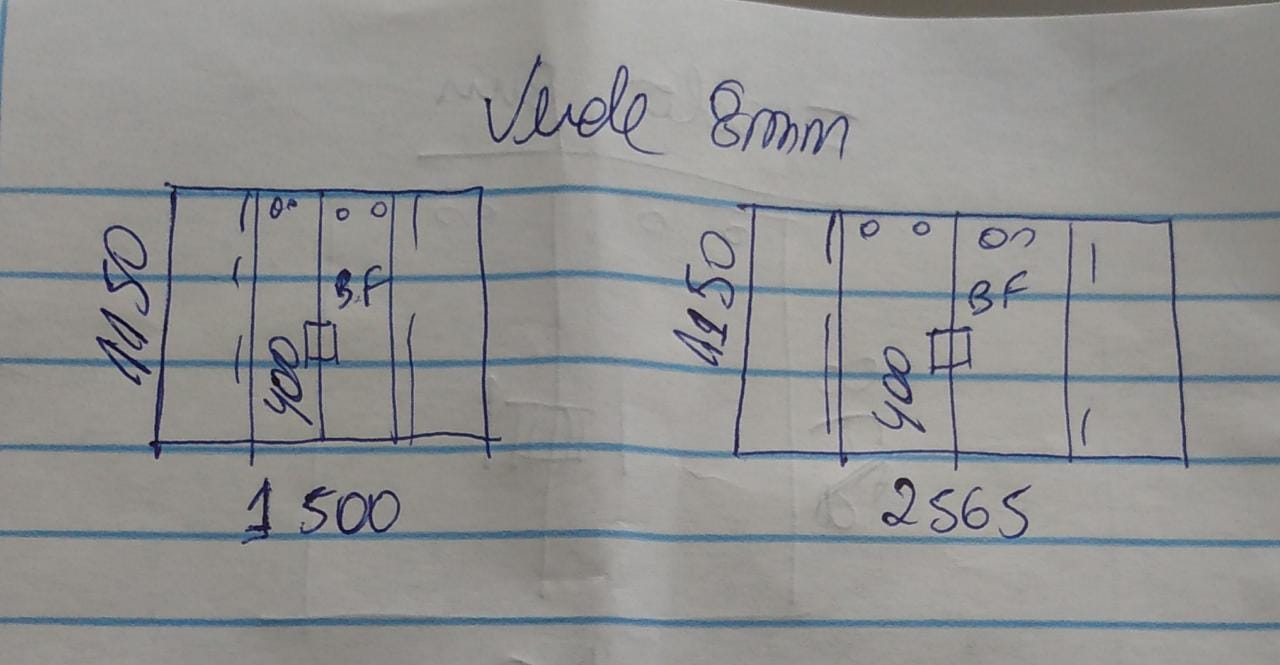 Verde 8mm
1150
B.F
400
1 500
1150
BF
400
2565